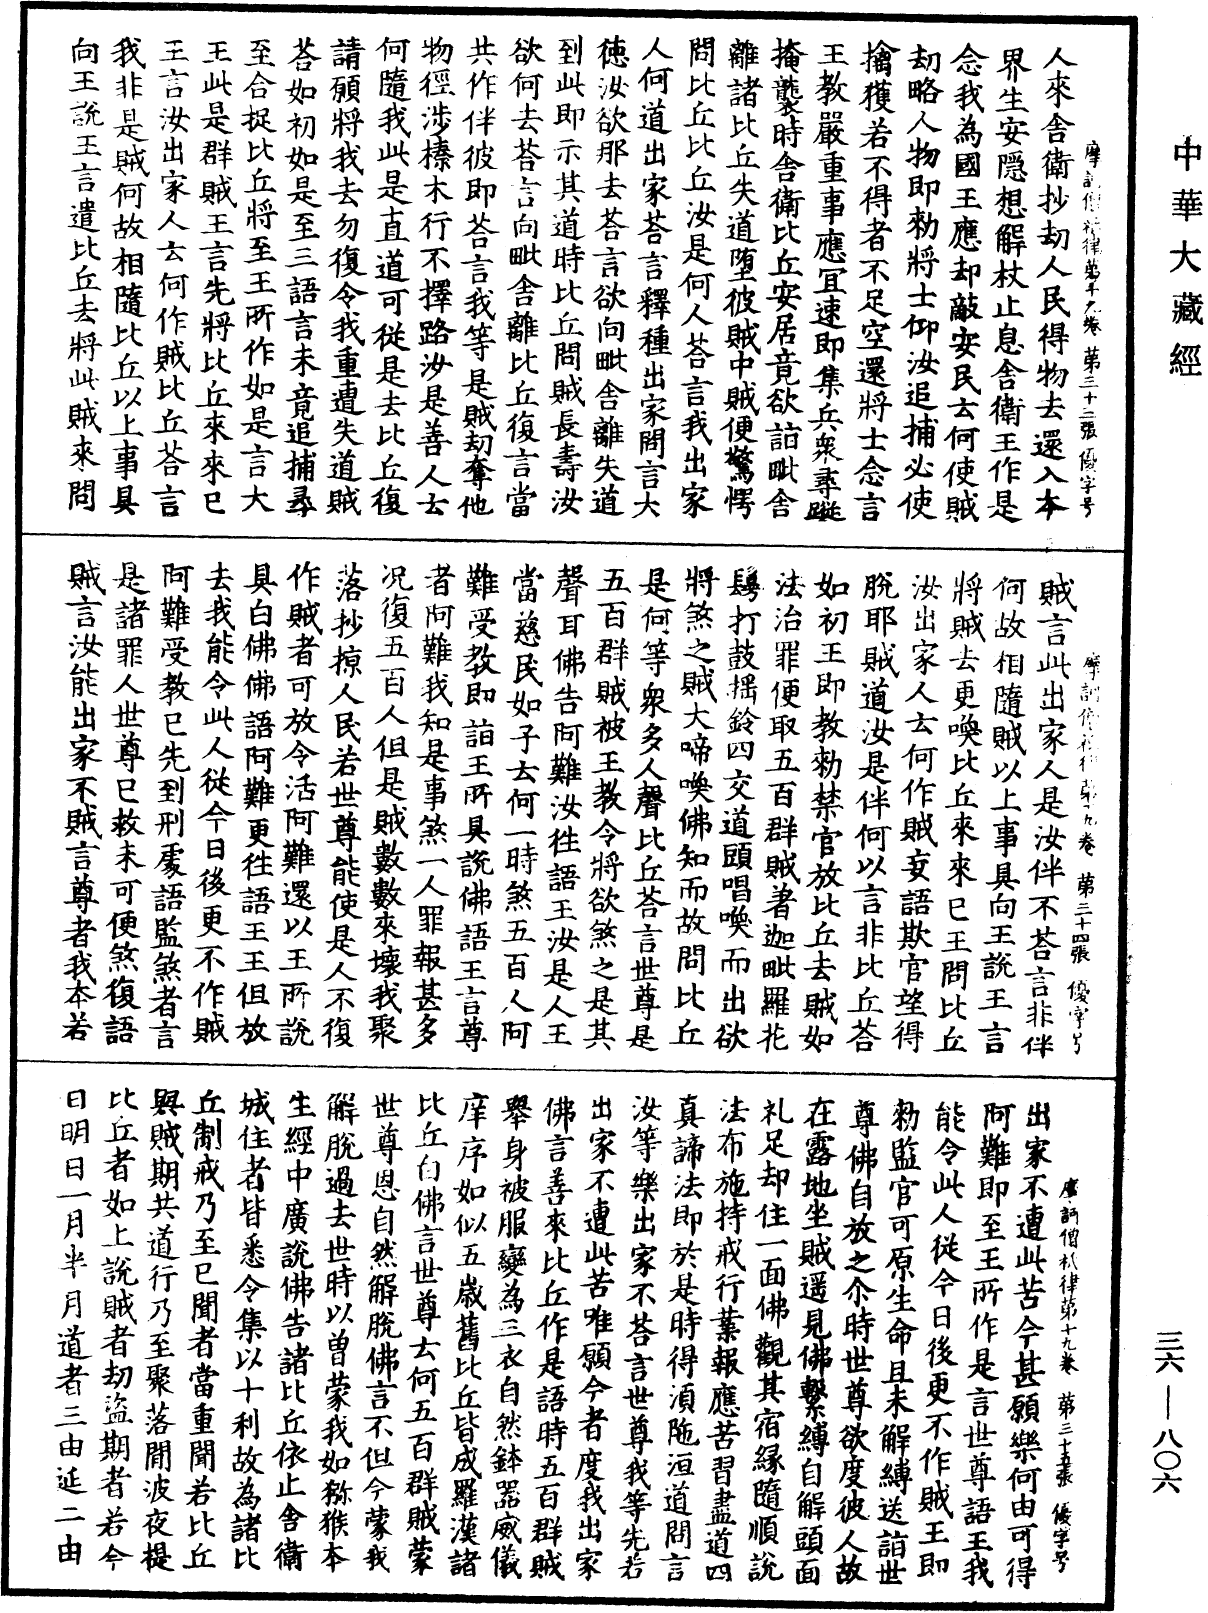 中華大藏經
摩訶僧祇律第十九卷 第三十三張 優字号
人來舍衛抄劫人民得物去還入本
界生安隱想解杖止息舍衛王作是
念我為國王應却敵安民云何使賊
劫略人物即勑將士仰汝追捕必使
擒獲若不得者不足空還將士念言
王教嚴重事應宜速即集兵衆尋蹤
掩襲時舍衛比丘安居竟欲詣毗舍
離諸比丘失道墮彼賊中賊便驚愕
問比丘比丘汝是何人荅言我出家
人何道出家荅言釋種出家問言大
德汝欲那去荅言欲向毗舍離失道
到此即示其道時比丘問賊長壽汝
欲何去荅言向毗舍離比丘復言當
共作伴彼即荅言我等是賊劫奪他
物徑涉榛木行不擇路汝是善人云
何隨我此是直道可從是去比丘復
請願將我去勿復令我重遭失道賊
荅如初如是至三語言未竟追捕尋
至合捉比丘將至王所作如是言大
王此是群賊王言先將比丘來來已
王言汝出家人云何作賊比丘荅言
我非是賊何故相隨比丘以上事具
向王說王言遣比丘去將此賊來問
摩訶僧祇律第十九卷 第三十四張 優字号
賊言此出家人是汝伴不荅言非伴
何故相隨賊以上事具向王說王言
將賊去更喚比丘來來已王問比丘
汝出家人云何作賊妄語欺官望得
脫耶賊道汝是伴何以言非比丘荅
如初王即教勑禁官放比丘去賊如
法治罪便取五百群賊著迦毗羅花
鬘打鼓搖鈴四交道頭唱喚而出欲
將煞之賊大啼喚佛知而故問比丘
是何等衆多人聲比丘荅言世尊是
五百群賊被王教令將欲煞之是其
聲耳佛告阿難汝往語王汝是人王
當慈民如子云何一時煞五百人阿
難受教即詣王所具說佛語王言尊
者阿難我知是事煞一人罪報甚多
況復五百人但是賊數數來壞我聚
落抄掠人民若世尊能使是人不復
作賊者可放令活阿難還以王所說
具白佛佛語阿難更往語王王但放
去我能令此人從今日後更不作賊
阿難受教已先到刑處語監煞者言
是諸罪人世尊已救未可便煞復語
賊言汝能出家不賊言尊者我本若
摩訶僧祇律第十九卷 第三十五張 優字号
出家不遭此苦今甚願樂何由可得
阿難即至王所作是言世尊語王我
能令此人從今日後更不作賊王即
勑監官可原生命且未解縛送詣世
尊佛自放之尒時世尊欲度彼人故
在露地坐賊遥見佛繫縛自解頭面
礼足却住一面佛觀其宿緣隨順說
法布施持戒行業報應苦習盡道四
真諦法即於是時得須陁洹道問言
汝等樂出家不荅言世尊我等先若
出家不遭此苦唯願今者度我出家
佛言善來比丘作是語時五百群賊
舉身被服變為三衣自然鉢器威儀
庠序如似五歲舊比丘皆成羅漢諸
比丘白佛言世尊云何五百群賊蒙
世尊恩自然解脫佛言不但今蒙我
解脫過去世時以曾蒙我如猕猴本
生經中廣說佛告諸比丘依止舍衛
城住者皆悉令集以十利故為諸比
丘制戒乃至已聞者當重聞若比丘
與賊期共道行乃至聚落閒波夜提
比丘者如上說賊者劫盜期者若今
日明日一月半月道者三由延二由
三六—八〇六